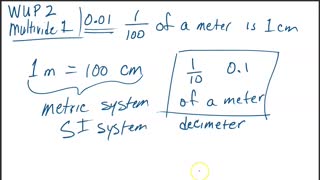 WUP 2
Multivide 1
0.01 1/100 of a meter is 1 cm
1 m = 100 cm
metric system
SI system
1/10 0.1
of a meter
decimeter